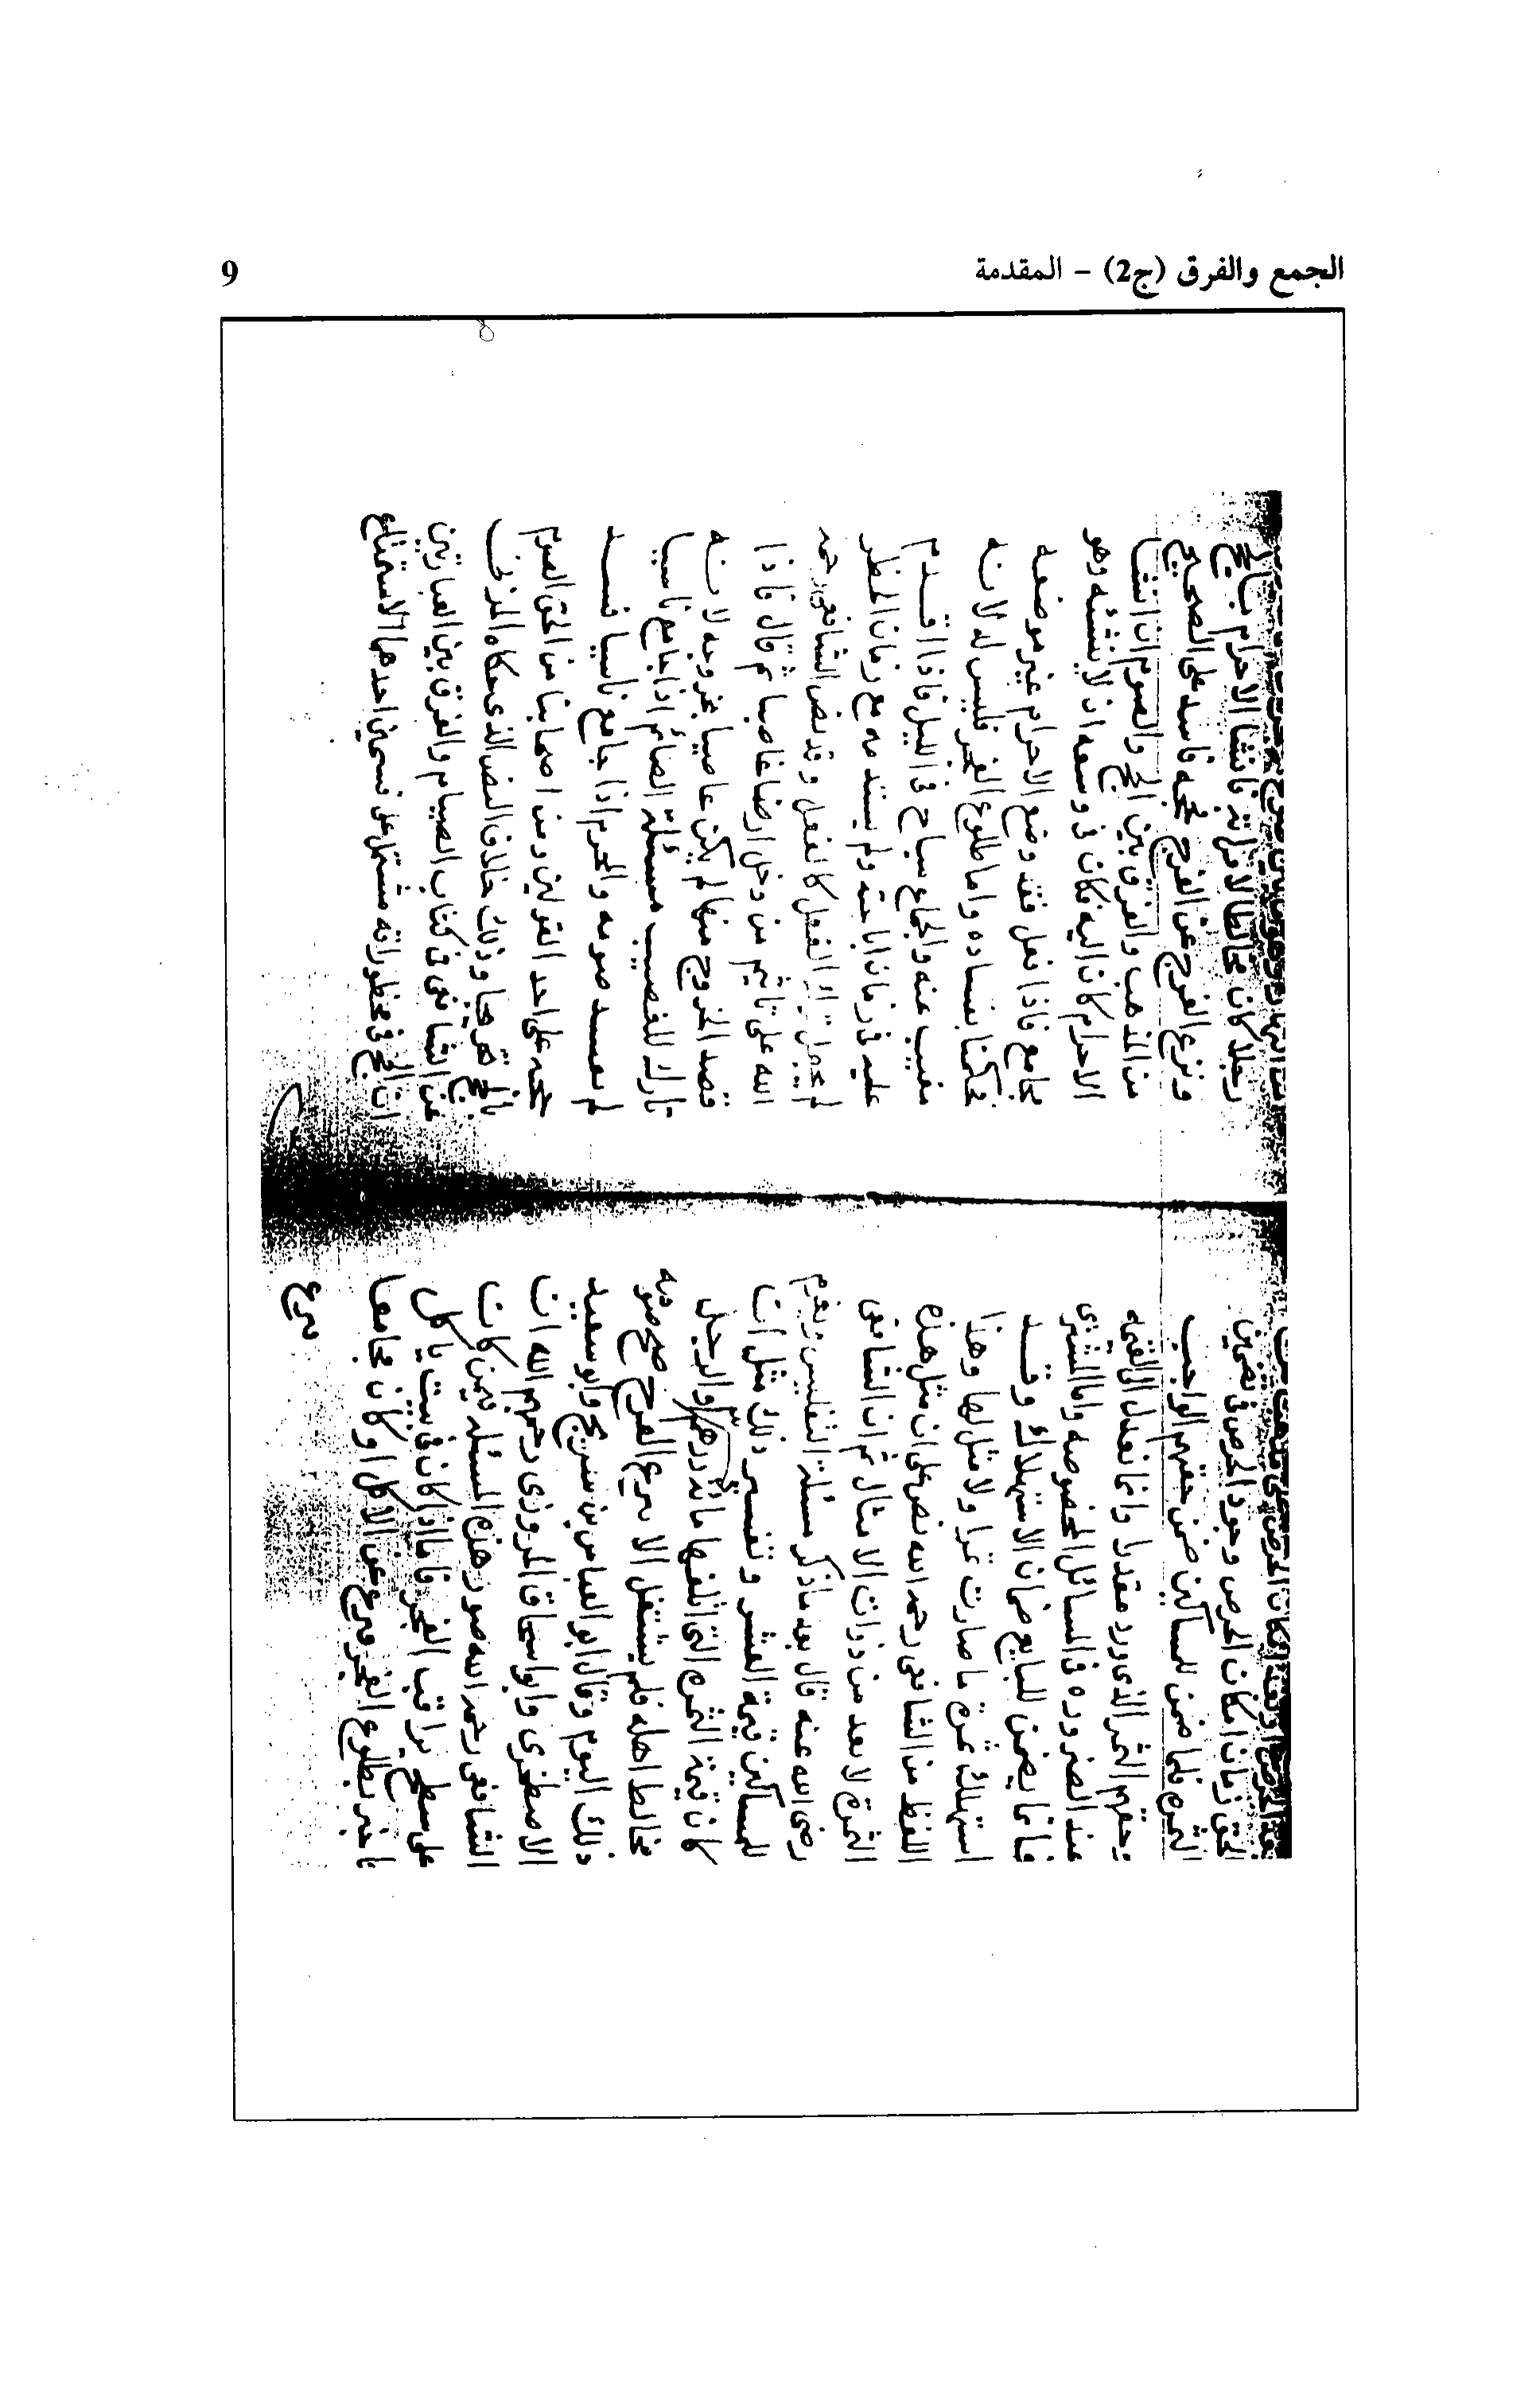 الجمع والفرق (ج2) – المقدمة
9
الحق زمان امكان الخرص وجود الخرص في تضمين
الثمرة فلما ضمن للمساكين ضمن حقهم الواجب
وحقهم التمر الذى ورد مقدرا وانما نعدل الى القيمه
عند الضروره فى المسائل المخصوصه واما المشترى
فانما يضمن للبايع ضمان الاستهلاك وقد
استهلك ثمرة ما صارت تمرا ولا مثل لها وهذا
اللفظ من الشافعى رحمه الله نص على ان مثل هذه
الثمرة لا يعد من ذوات الامثال ثم ان الشافعى
رضى الله عنه قال بعد ما ذكر مسئلة التفليس ويغرم
للمساكين قيمة العشر وتفسير ذلك مثل ان
كان قيمة الثمره التى اتلفها مائة درهم والرجل
مخالط اهله فلم يشتغل الا بنزع الفرج صح صومه
ذلك اليوم وقال ابو العباس بن سريج وابو سعيد
الاصطخرى وابو اسحاق المروزى رحمهم الله ان
الشافعى رحمه الله صور هذه المسئله فيمن كان
على سطح يراقب الفجر فاما اذا كان فى بيت ياكل
فاخبر بطلوع الفجر فنزع عن الاكل او كان مجامعا
فنزع
رجلا كان مخالطا لامراته فانشا الاحرام بالحج
ونزع الفرج عن الفرج فحجه فاسد على الصحيح
من المذهب والفرق بين الحج والصوم ان انشا
الاحرام كان اليه فكان فى وسعه ان لا ينشئه وهو
مجامع فاذا فعل فقد وضع الاحرام غير موضعه
فحكمنا بفساده واما طلوع الفجر فليس له لانه
مغيب عنه والجماع مباح فى الليل فاذا اقدم
عليه فى زمان اباحته ولم يستدمه مع زمان الحظر
لم يجعل ترك الفعل كالفعل وقد نص الشافعى رحمه
الله على تاثيم من دخل ارضا غاصبا ثم قال فاذا
قصد الخروج منها لم يكن عاصيا بخروجه لانه
تارك للغصب مسئلة الصائم اذا جامع ناسيا
لم يفسد صومه والمحرم اذا جامع ناسيا فسد
حجه على احد القولين ومن اصحابنا من الحق الصوم
بالحج تخريجا وذلك خلاف النص الذى حكاه المزنى
عن الشافعى فى كتاب الصيام والفرق بين العبادتين
ان الحج فى محظوراته مشتمل على قسمين احدهما الاستمتاع